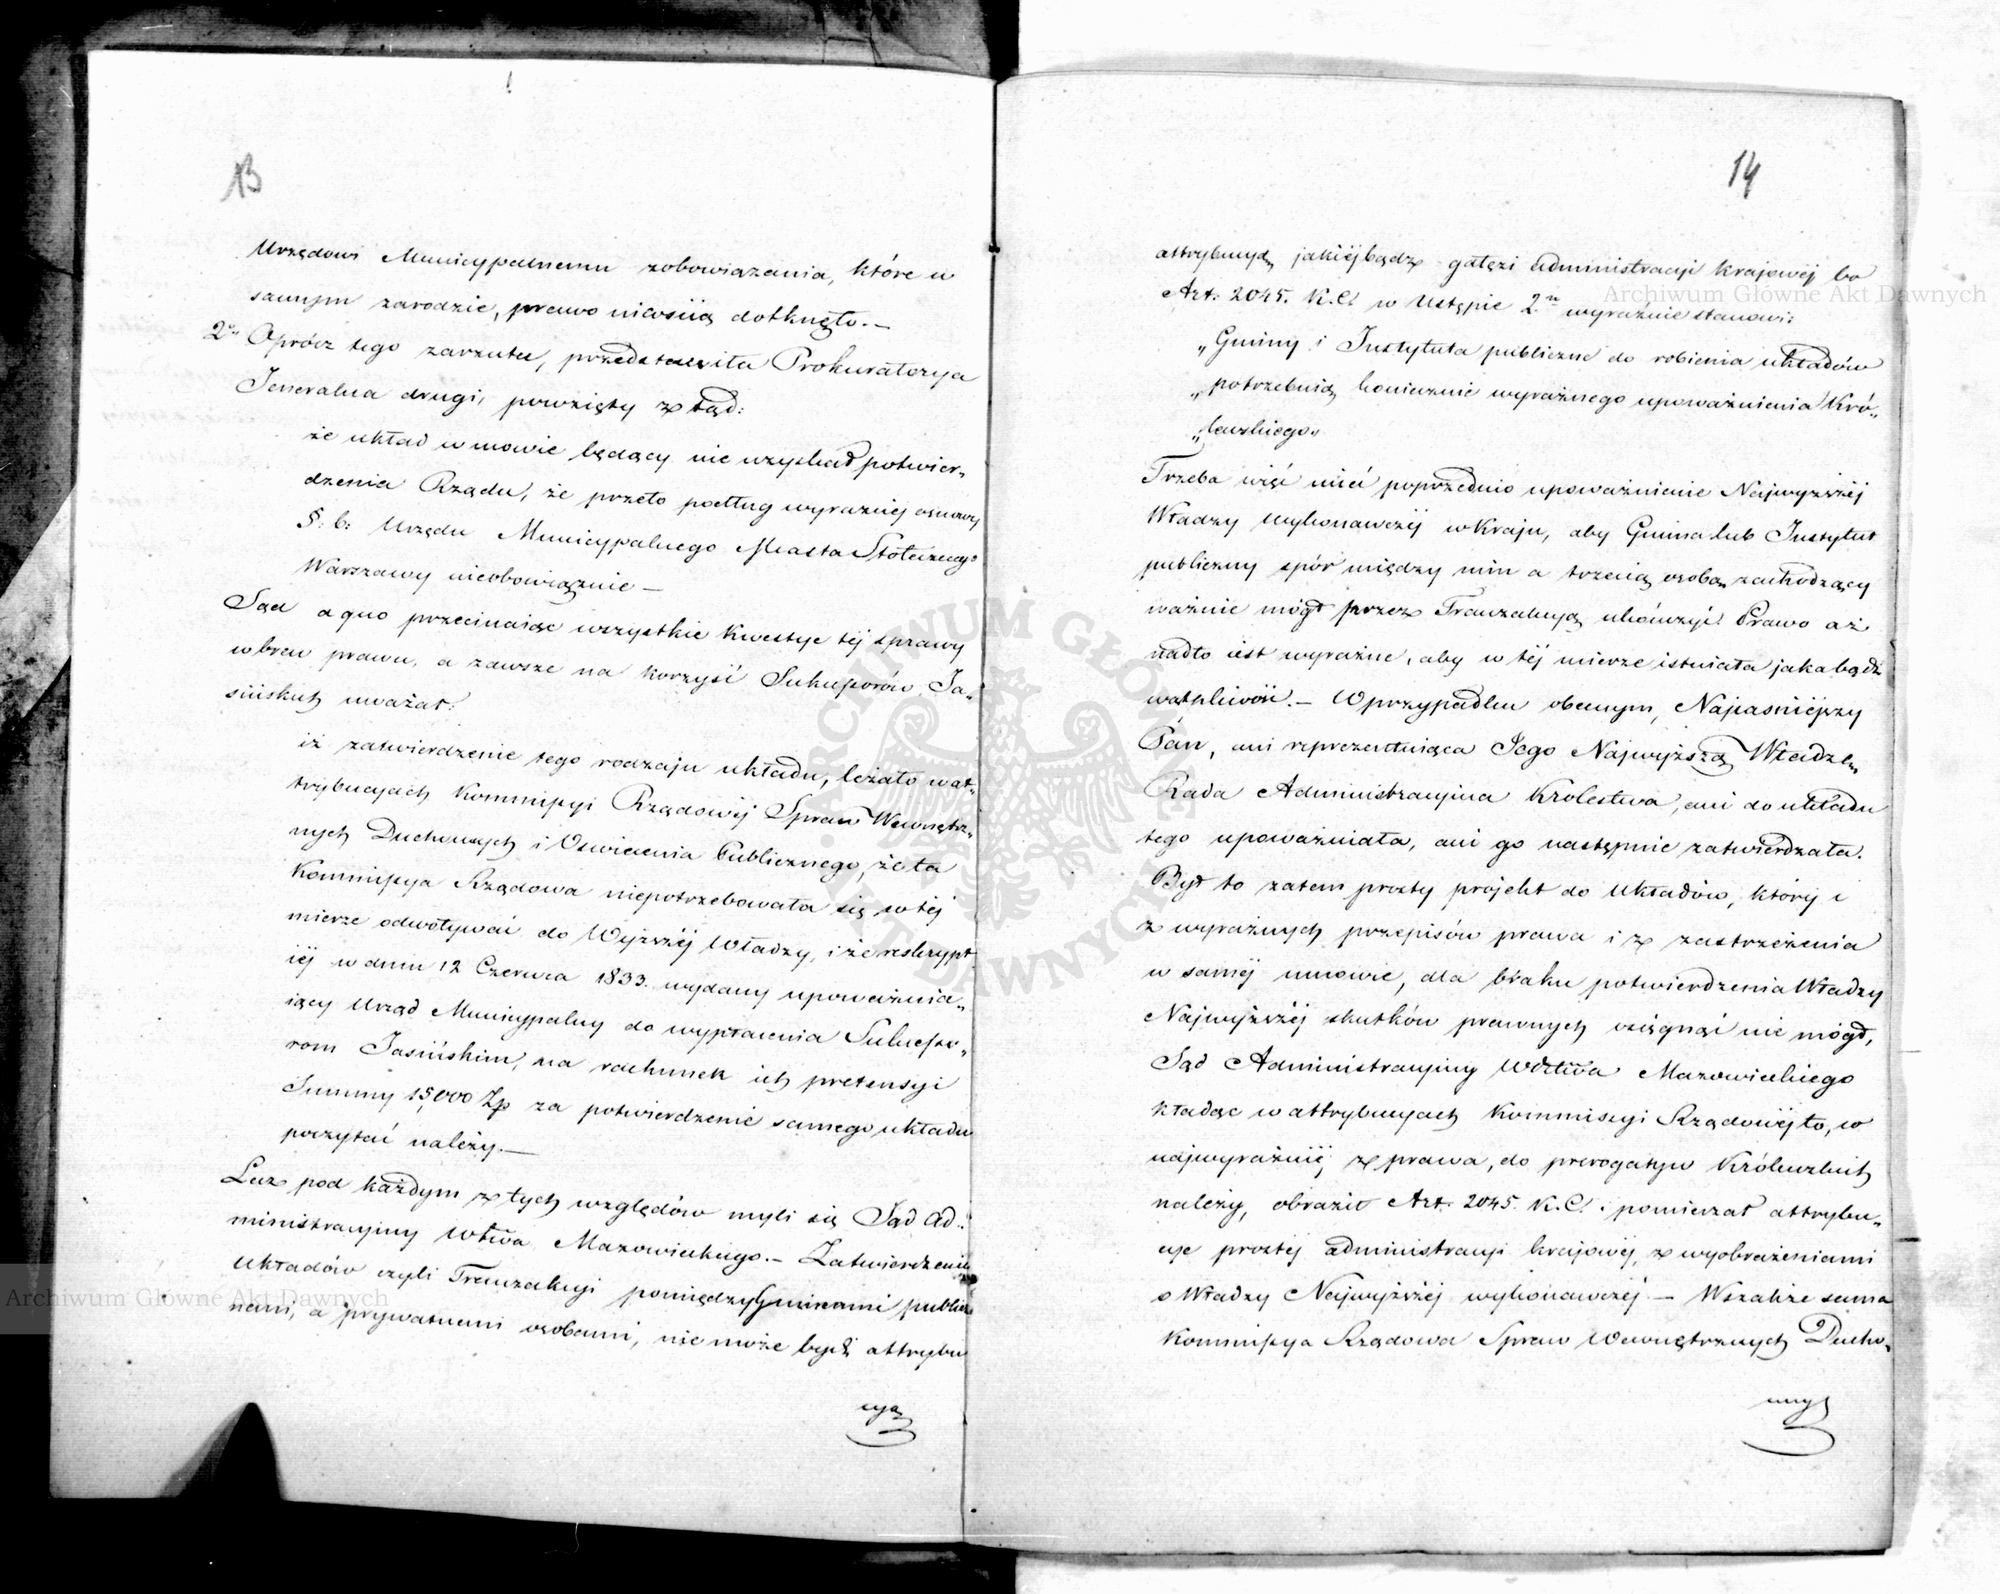 13
Urzędowi Municypalnemu zobowiązania, które w
samym zarodzie, prawo nicością dotknęło.—
2o Oprócz tego zarzutu, przedstawiła Prokuratorya
Jeneralna drugi, powzięty z tąd:
że układ w mowie będący nie uzyskał potwier„
dzenia Rządu, że przeto podług wyraźnéj osnowy
§: 6: Urzędu Municypalnego Miasta Stołecznego
Warszawy nieobowiązuie—
Sąd a quo przecinaiąc wszystkie kwestye téj sprawy
wbrew prawu, a zawsze na korzyść Sukcessorów Ja„
sińskich uważał:
iż zatwierdzenie tego rodzaju układu, leżało w at„
trybucyach Kommissyi Rządowéj Spraw Wewnętrz„
nych Duchownych i Oświecenia Publicznego, że ta
Kommissya Rządowa niepotrzebowała się w téj
mierze odwoływać do Wyższéj Władzy, i że reskrypt
iéj w dniu 12 Czerwca 1833. wydany upoważnia„
iący Urząd Municypalny do wypłacenia Sukcesso„
rom Jasińskim, na rachunek ich pretensyi
Summy 15,000 Zp za potwierdzenie samego układu
poczytać należy.—
Lecz pod każdym z tych względów myli się Sąd Ad„
ministracyiny Wdztwa Mazowieckiego.— Zatwierdzenie
układów czyli Tranzakcyi pomiędzy Gminami publicz
nemi, a prywatnemi osobami, nie może bydź attrybu
cyą
14
attrybucyą jakiéjbądź gałęzi administracyi krajowéj bo
Art: 2045. K.C. w Ustępie 2m wyraźnie stanowi:
„Gminy i Instytuta publiczne do robienia układów
„potrzebuią koniecznie wyraźnego upoważnienia Kró„
„lewskiego„
Trzeba więc mieć poprzednio upoważnienie Najwyższéj
Władzy Wykonawczéj w Kraju, aby Gmina lub Instytut
publiczny spór między nim a trzecią osobą zachodzący
ważnie mógł przez Tranzakcyą ukończyć. Prawo aż
nadto iest wyraźne, aby w téj mierze istniała jakabądź
wątpliwość.— W przypadku obecnym, Najjaśniéjszy
Pan, ani reprezentuiąca Jego Najwyższą Władzę„
Rada Administracyina Królestwa, ani do układu
tego upoważniała, ani go następnie zatwierdzała.
Był to zatem prosty projekt do układów, który i
z wyraźnych przepisów prawa i z zastrzeżenia
w saméj umowie, dla braku potwierdzenia Władzy
Najwyższéj skutków prawnych osięgnąć nie mógł,
Sąd Administracyiny Wdztwa Mazowieckiego
kładąc w attrybucyach Kommissyi Rządowéj to, co
najwyraźniéj z prawa, do prerogatyw Królewskich
należy, obraził Art: 2045. K.C. i pomieszał attrybu„
cye prostéj administracyi krajowéj, z wyobrażeniami
o Władzy Najwyższéj wykonawczéj.— Wszakże sama
Kommissya Rządowa Spraw Wewnętrznych Ducho„
wnych
Archiwum Główne Akt Dawnych
Archiwum Główne Akt Dawnych
ARCHIWUM GŁÓWNE AKT DAWNYCH